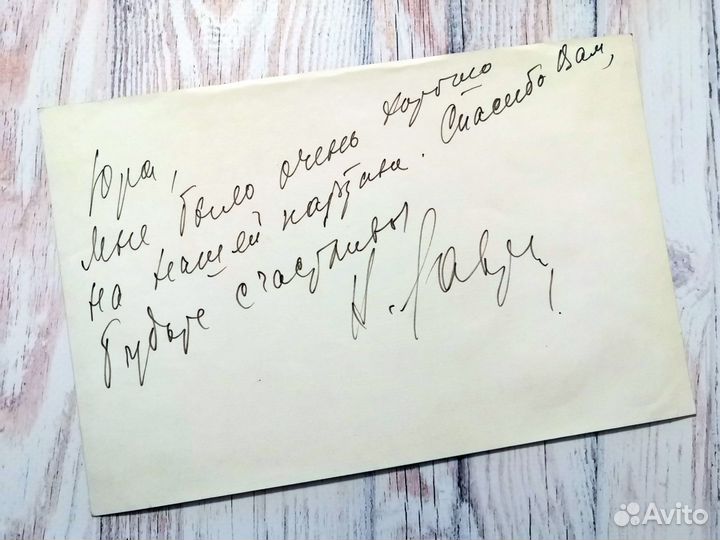 Юра,
Мне было очень хорошо
на нашей картине. Спасибо Вам,
Будьте счастливы
Avito